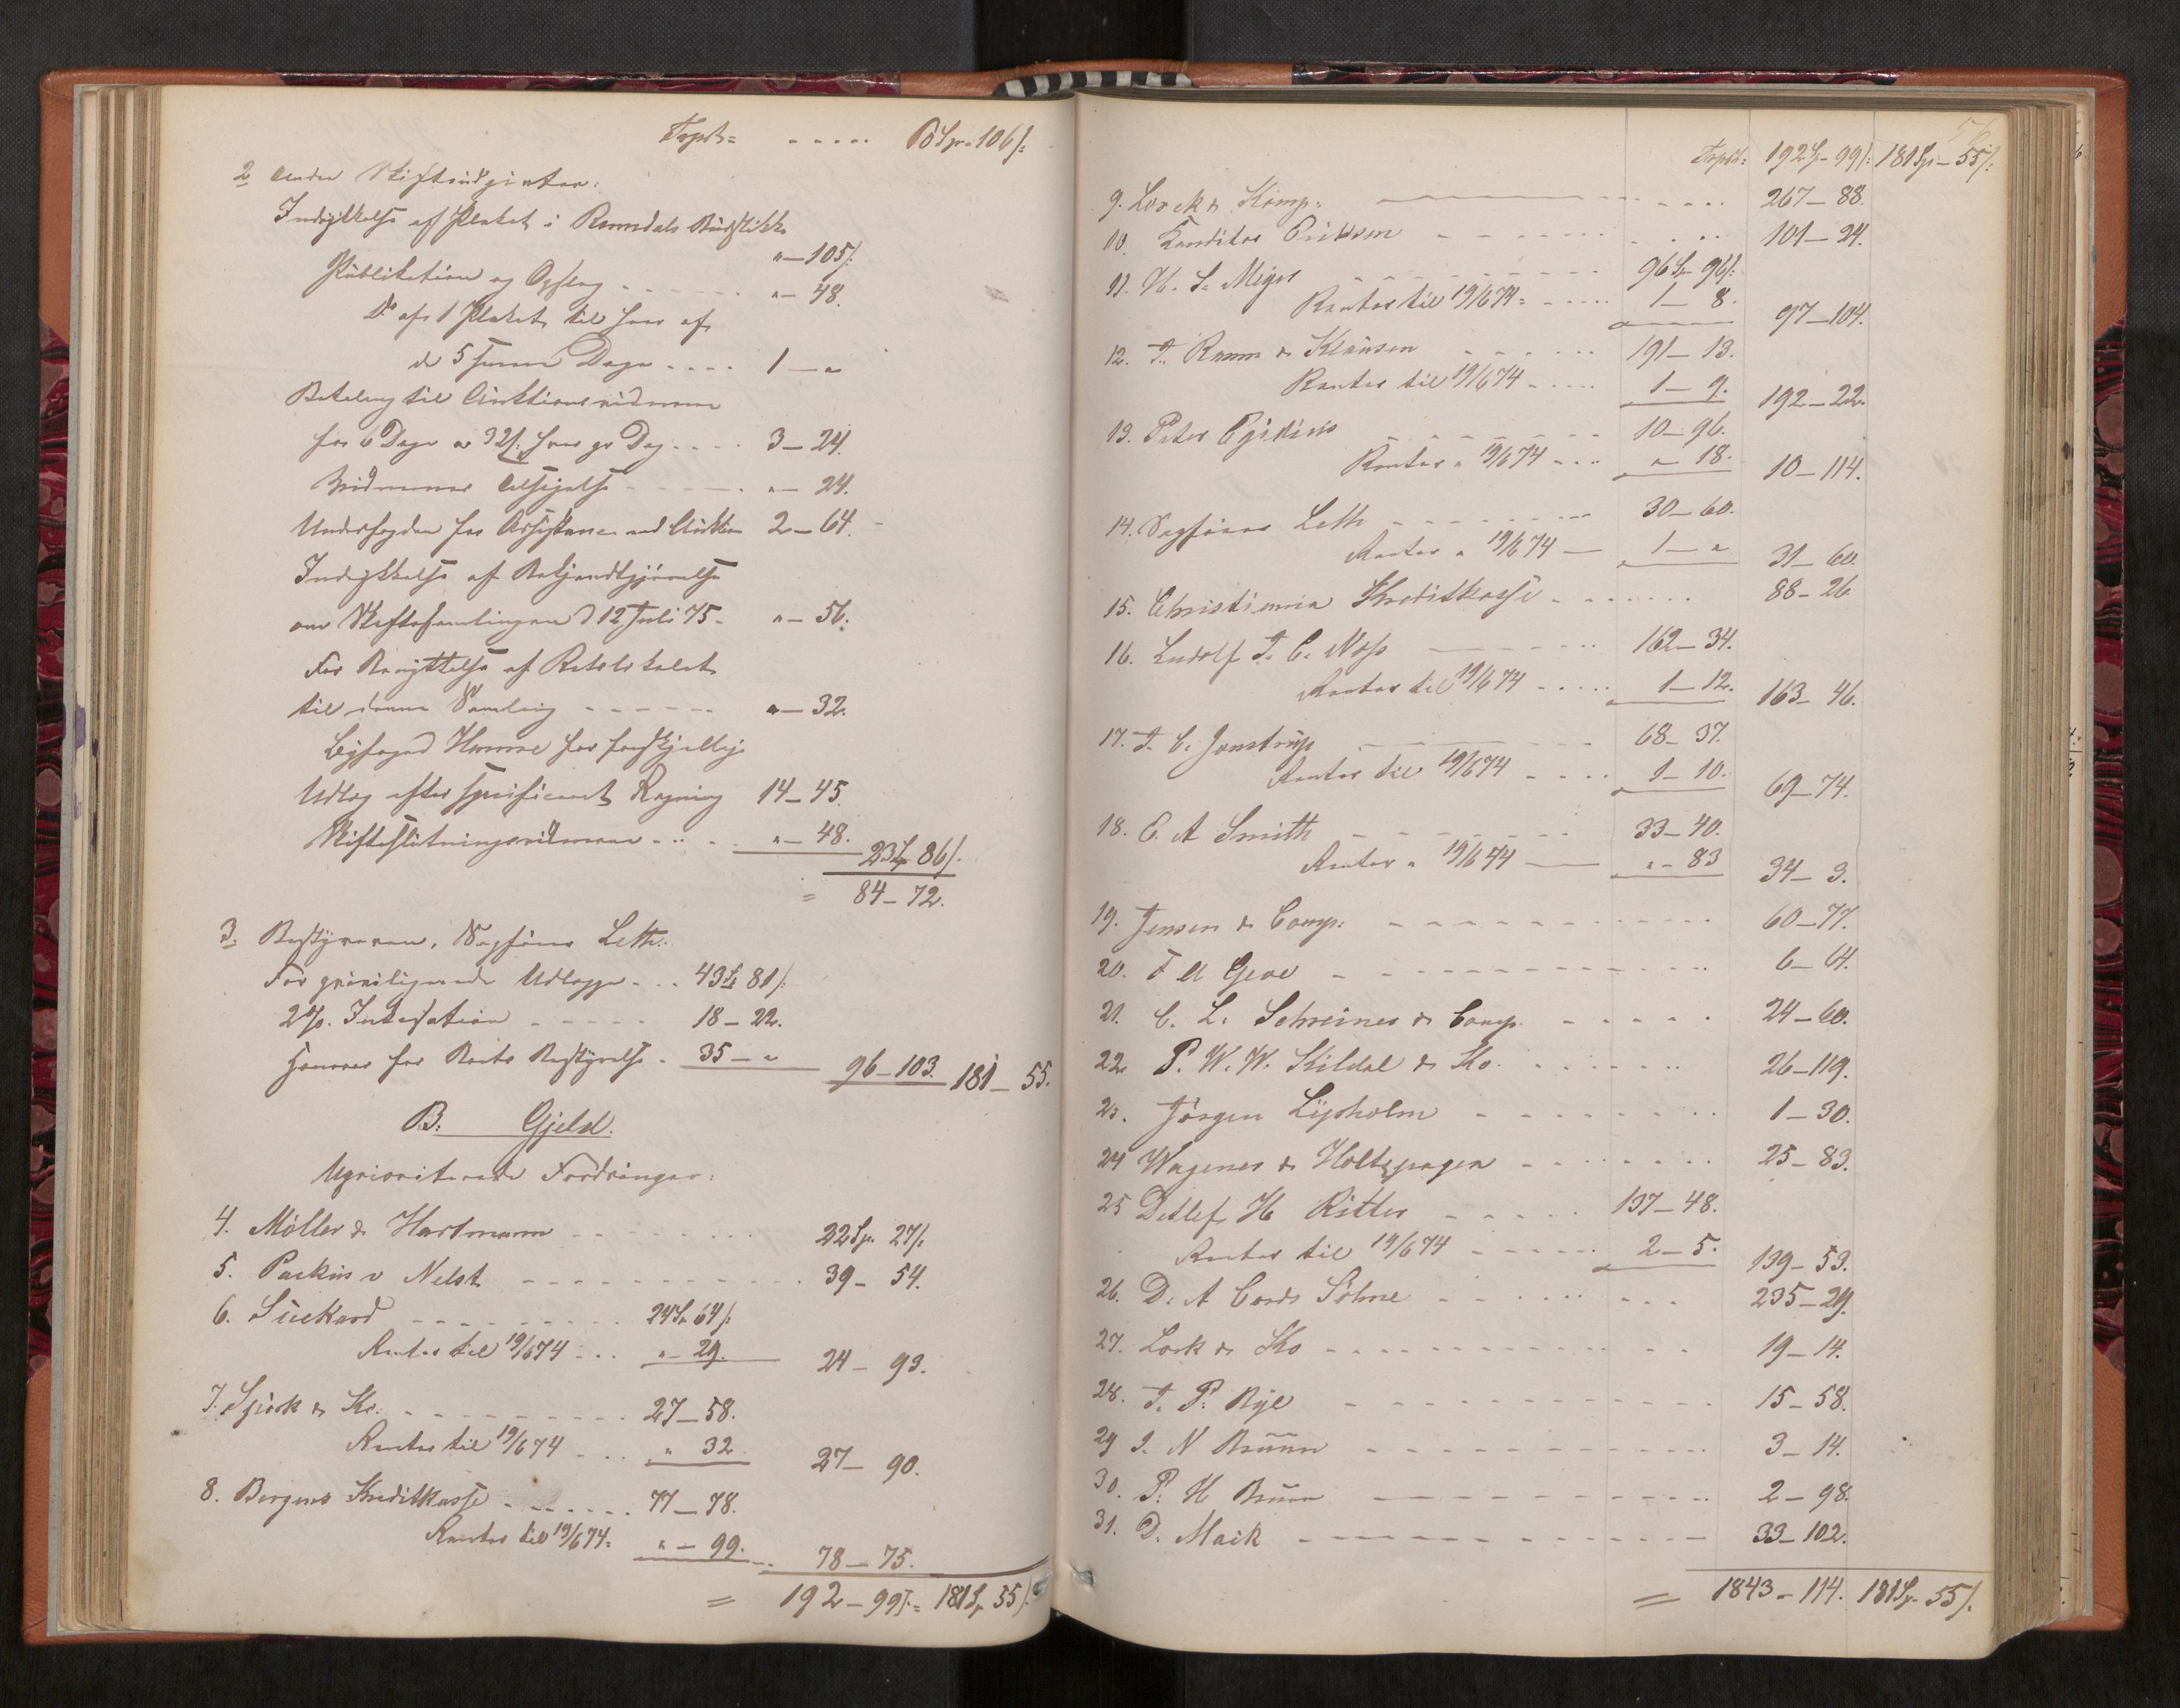 Trpt= - - - - - 60 Spr. 106 /:
2 Andre Skifteudgifter:
Indrykkelse af Plakat i Romsdals Budstikke "—105/:
Publikation og Opslag - - - - - "— 48.
Do af 1 Plakat til hver af
de 5 Dage - - - - 1 — "
Betaling til Auktionsvidnerne
for 6 Dage a 32/: hver pr Dag - - - - 3 — 24.
Vidnernes Tilsigelse - - - - - "— 24.
Underfogden for Assistance ved Auktion 2 — 64.
Indrykkelse af Bekjendtgjørelse
om Skiftesamlingen d 12 Juli 75 - "— 56.
For Benyttelse af Retslokalet
til denne Samling - - - - - - "— 32.
Byfoged Hammer for forskjellige
Udlæg efter specificeret Regning 14 — 45.
Skifteslutningsvidnerne - - - "— 48. 23 Sp 86/:
= 84 — 72.
3. Bestyreren, Sagfører Leth:
For præviligerede Udlægge - - - 43 Sp 81/:
2 % Inkassation - - - - - 18 — 22.
Honorar for Boets Bestyrelse - 35 — " 96 — 103. 181 — 55.
B. Gjeld.
Uprioriterede Fordringer:
4. Möller & Hartmann - - - - - - - - 22 Sp. 27/:
5. Packin v Nelst - - - - - - - - - - - - 39 — 54.
6. Suckard - - - - - - - - - 24 Sp 64/:
Renter til 19/6 74 - - - "— 29. 24 — 93.
7. Spörk & Ko: - - - - - - - - - - 27 — 58.
Renter til 19/6 74 - - - " 32. 27 — 90.
8. Bergens Kreditkasse - - - - - - 77 — 78.
Renter til 19/6 74. "— 99. 78 — 75.
= 192 — 99/:= 181 Sp 55/:
56
Trpt: 192 Sp — 99/: 181 Sp — 55/:
9. Lorck & Komp: - - - - 267 — 88.
10. Konditor Eriksen - - - - - - 101 — 24.
11. H. S. Meyer - - - - - - - - - 96 Sp 96/:
Renter til 19/6 74 - - - - - 1 — 8. 97 — 104.
12. T. Ramm & Klausen - - - - - - 191 — 13.
Renter til 19/6 74 - - - - - 1 — 9. 192 — 22.
13. Peter Egidius - - - - - - - - 10 — 96.
Renter " 19/6 74 - - - "— 18. 10 — 114.
14. Sagfører Leth - - - - - - - - 30 — 60.
Renter " 19/6 74 — 1 — " 31 — 60.
15. Christiania Kreditkasse - - - - - - - 88 — 26
16. Ludolf T. C. Noss - - - - - 162 — 34.
Renter til 19/6 74 - - - - - 1 — 12. 163 — 46.
17. T. C. Jonstrup - - - - - - - - 68 — 37.
Renter til 19/6 74 - - - - 1 — 10. 69 — 74.
18. C. A Smith - - - - - - - - 33 — 40.
Renter " 19/6 74 — "— 83 34 — 3.
19. Jensen & Comp: - - - - - - - - - - - - 60 — 77.
20. F A Geve - - - - - - - - - - - - - 6 — 64.
21. C. L. Schreiner & Comp. - - - - - 24 — 60.
22 P. W. W. Kildal & Ko. - - - - - - - 26 — 119.
23. Jörgen Lysholm - - - - - - - - - 1 — 30.
24 Wagener & - - - - - - - 25 — 83.
25 Detlef H Ritter - - - - - 137 — 48.
Renter til 19/6 74 - - - - - - 2 — 5. 139 — 53.
26. D. A Cords Söhne - - - - - - - - - 235 — 29.
27. Lork & Ko - - - - - - - - - - - - 19 — 14.
28. T. P. Bye - - - - - - - - - - - - 15 — 58.
29 J. N Bruun - - - - - - - - - - - - 3 — 14.
30. P. H Bruun - - - - - - - - - - - 2 — 98.
31. D. Mack - - - - - - - - - - - - - 33 — 102.
= 1843 — 114. 181 Sp. 55/.